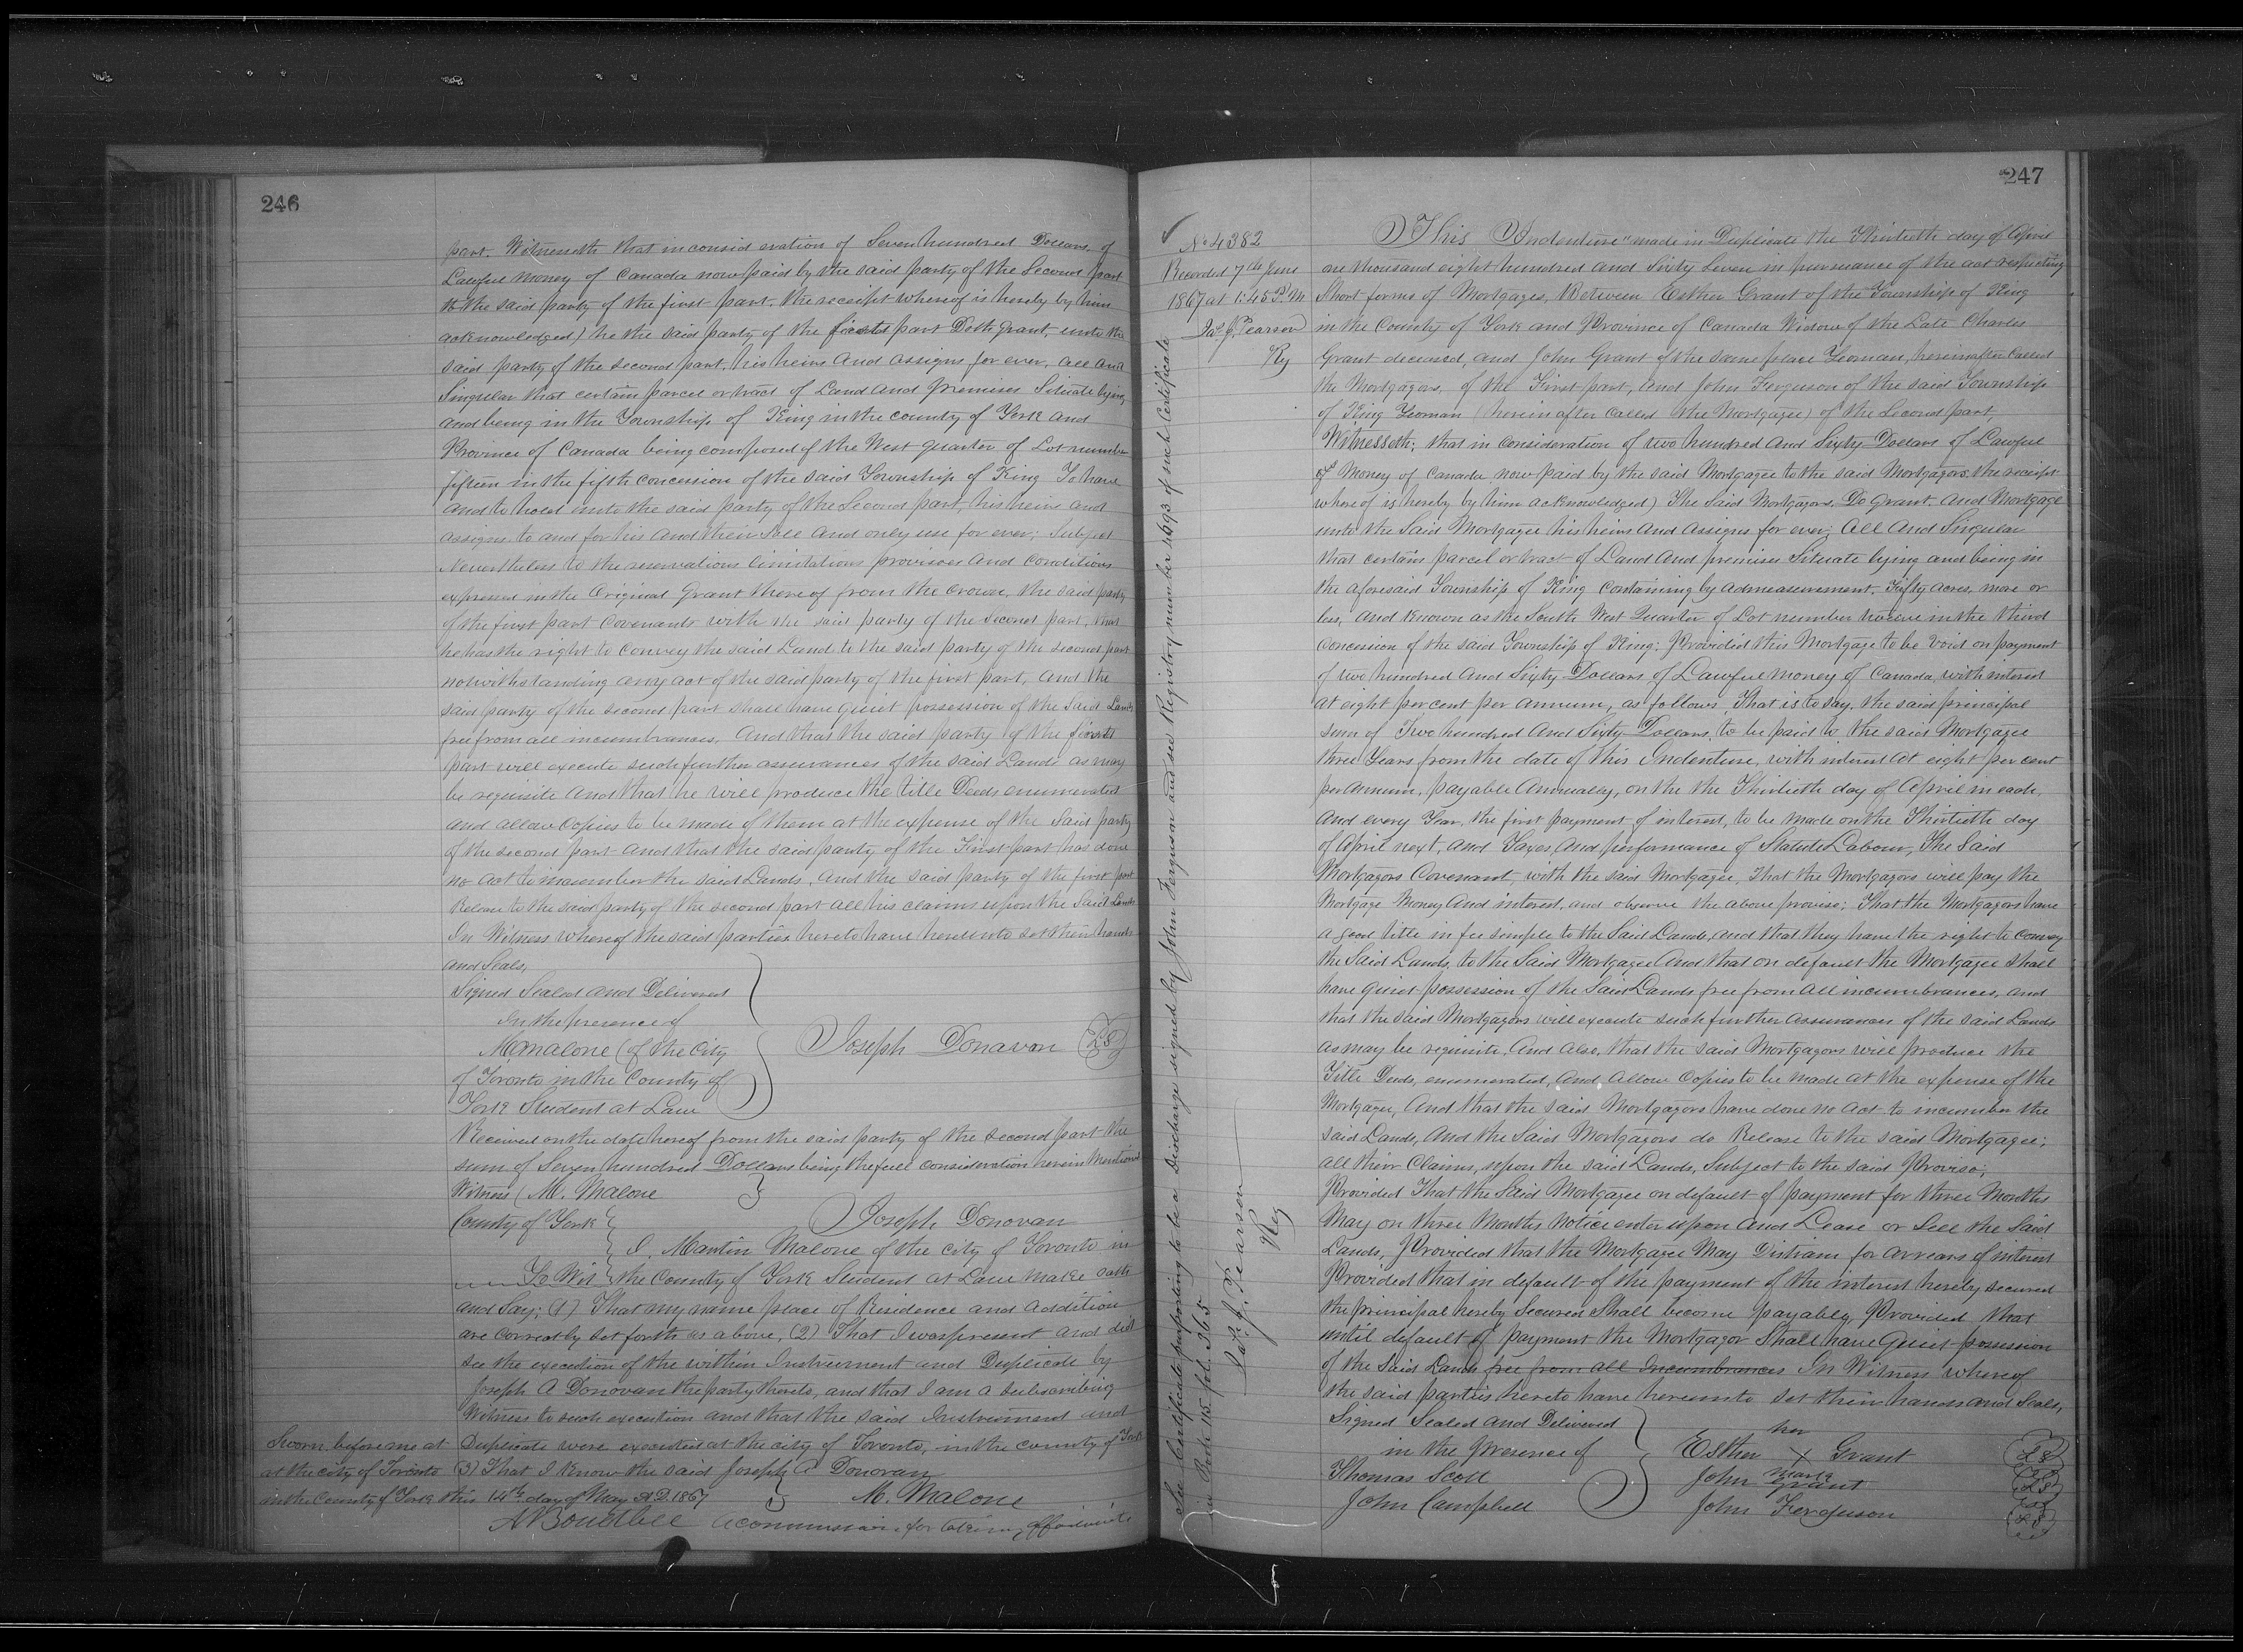 246
part. Witnesseth that in consideration of Seven hundred Dollars, of
Lawful Money of Canada now paid by the said party of the Second part
to the said party of the first part, the receipt whereof is hereby by him
acknowledged) he the said party of the first part Doth grant, unto the
said party of the second part, his heirs and assigns for ever, all and
Singular that certain parcel or tract of Land and premises Situate lying
and being in the Township of King in the county of York and
Province of Canada being composed of the West quarter of Lot number
fifteen in the fifth concession of the said Township of King To have
and to hold unto the said party of the Second part, his heirs and
assigns to and for his and their sole and only use for ever; Subject
Nevertheless to the reservations limitations provisoes and conditions
expressed in the Original Grant thereof from the Crown, the said party
of the first part Covenants with the said party of the Second part, that
he has the right to Convey the said Land to the said party of the second part
notwithstanding any act of the said party of the first part, and the
said party of the second part shall have quiet possession of the said Lands
free from all incumbrances. And that the said party of the first
part will execute such further assurances of the said Lands as may
be requisite and that he will produce the title Deeds enumerated
and allow Copies to be made of them at the expense of the Said party
of the second part and that the said party of the First part has done
no act to incumber the said Lands, and the said party of the first part
Release to the said party of the second part all his claims upon the Said Lands
In Witness whereof the said parties hereto have hereunto set their hands
and Seals,
Signed Sealed and Delivered
In the presence of
M Malone (of the City
of Toronto in the County of
York Student at Law
Joseph Donavan LS
Received on the date hereof from the said party of the second part the
sum of Seven hundred Dollars being the full consideration herein Mentioned
Witness (M. Malone
Joseph Donovan
County of York
I, Martin Malone of the City of Toronto in
To Wit the County of York Student at Law make oath
and Say; (1) That my name place of Residence and addition
are Correctly set forth as above, (2) That I was present and did
see the execution of the within Instrument and Duplicate by
Joseph A Donovan the party thereto, and that I am a Subscribing
Witness to such execution and that the said Instrument and
Duplicate were executed at the city of Toronto, in the county of York
(3) That I know the said Joseph A Donovan
Sworn before me at
at the city of Toronto
in the County of York this 14th day of May A.D. 1867
M. Malone
a commissioner for taking affidavits
247
No 4382
Recorded 7th June
1867 at 1:45 P.M
Jas J. Pearson
Reg
This Indenture" made in Duplicate the Thirtieth day of April
one thousand eight hundred and Sixty Seven in pursuance of the act respecting
Short forms of Mortgages, Between Esther Grant of the Township of King
in the County of York and Province of Canada Widow of the Late Charles
Grant deceased, and John Grant of the same place Yeoman, hereinafter Called
the Mortgagors, of the First part, and John Ferguson of the said Township
of King Yeoman (hereinafter Called the Mortgagee) of the Second part,
Witnesseth; that in consideration of two hundred and Sixty Dollars of Lawful
of Money of Canada now paid by the said Mortgagee to the said Mortgagors, the receipt
whereof is hereby by him acknowledged) The Said Mortgagors, Do Grant. and Mortgage
unto the Said Mortgagee his heirs and assigns for ever; all and Singular
that certain parcel or tract of Land and premises Situate lying and being in
the aforesaid Township of King Containing by admeasurement, Fifty acres, more or
less, and known as the South West Quarter of Lot number twelve in the third
Concession of the said Township of King; Provided this Mortgage to be void on payment
of two hundred and Sixty Dollars, of Lawful money of Canada, with interest
at eight per cent per annum, as follows, That is to say, the said principal
sum of Two hundred and Sixty Dollars, to be paid to the said Mortgagee
three Years from the date of this Indenture, with interest at eight per cent
per annum, payable Annually, on the the Thirtieth day of April in each,
and every Year, the first payment of interest, to be made on the Thirtieth day
of April next, and Taxes, and performance of Statute Labour, The Said
Mortgagors Covenant, with the said Mortgagee, That the Mortgagors will pay the
Mortgage Money and interest, and observe the above proviso; That the Mortgagors have
a good title in fee simple to the Said Lands, and that they have the right to convey
the Said Lands, to the Said Mortgagee and that on default the Mortgagee shall
have quiet possession of the Said Lands free from all incumbrances, and
that the said Mortgagors will execute such further assurances of the said Lands
as may be requisite, And also, that the said Mortgagors will produce the
Title Deeds, enumerated, and allow Copies to be made at the expense of the
Mortgagee, And that the said Mortgagors have done no act to incumber the
said Lands, And the Said Mortgagors do Release to the said Mortgagee;
all their Claims, upon the said Lands, Subject to the said Proviso;
Provided That the Said Mortgagee on default of payment for three Months
May on three Months Notice enter upon and Lease or Sell the Said
Lands, Provided that the Mortgagee May Distrain for arrears of interest
Provided that in default of the payment of the interest hereby secured
the principal hereby Secured Shall become payable, Provided that
until default of payment the Mortgagor Shall have Quiet possession
of the Said Lands free from all Incumbrances In Witness whereof
the said parties hereto have hereunto set their hands and Seals,
Signed Sealed and Delivered
in the presence of
Thomas Scott
John Campbell
her
Esther X Grant LS
mark
John Grant LS
John Ferguson LS
See Certificate purporting to be a Discharge signed by John Ferguson and see Registry number 1693 of such Certificate
in Book 115 fol. 365
Jas. J. Pearson
Reg